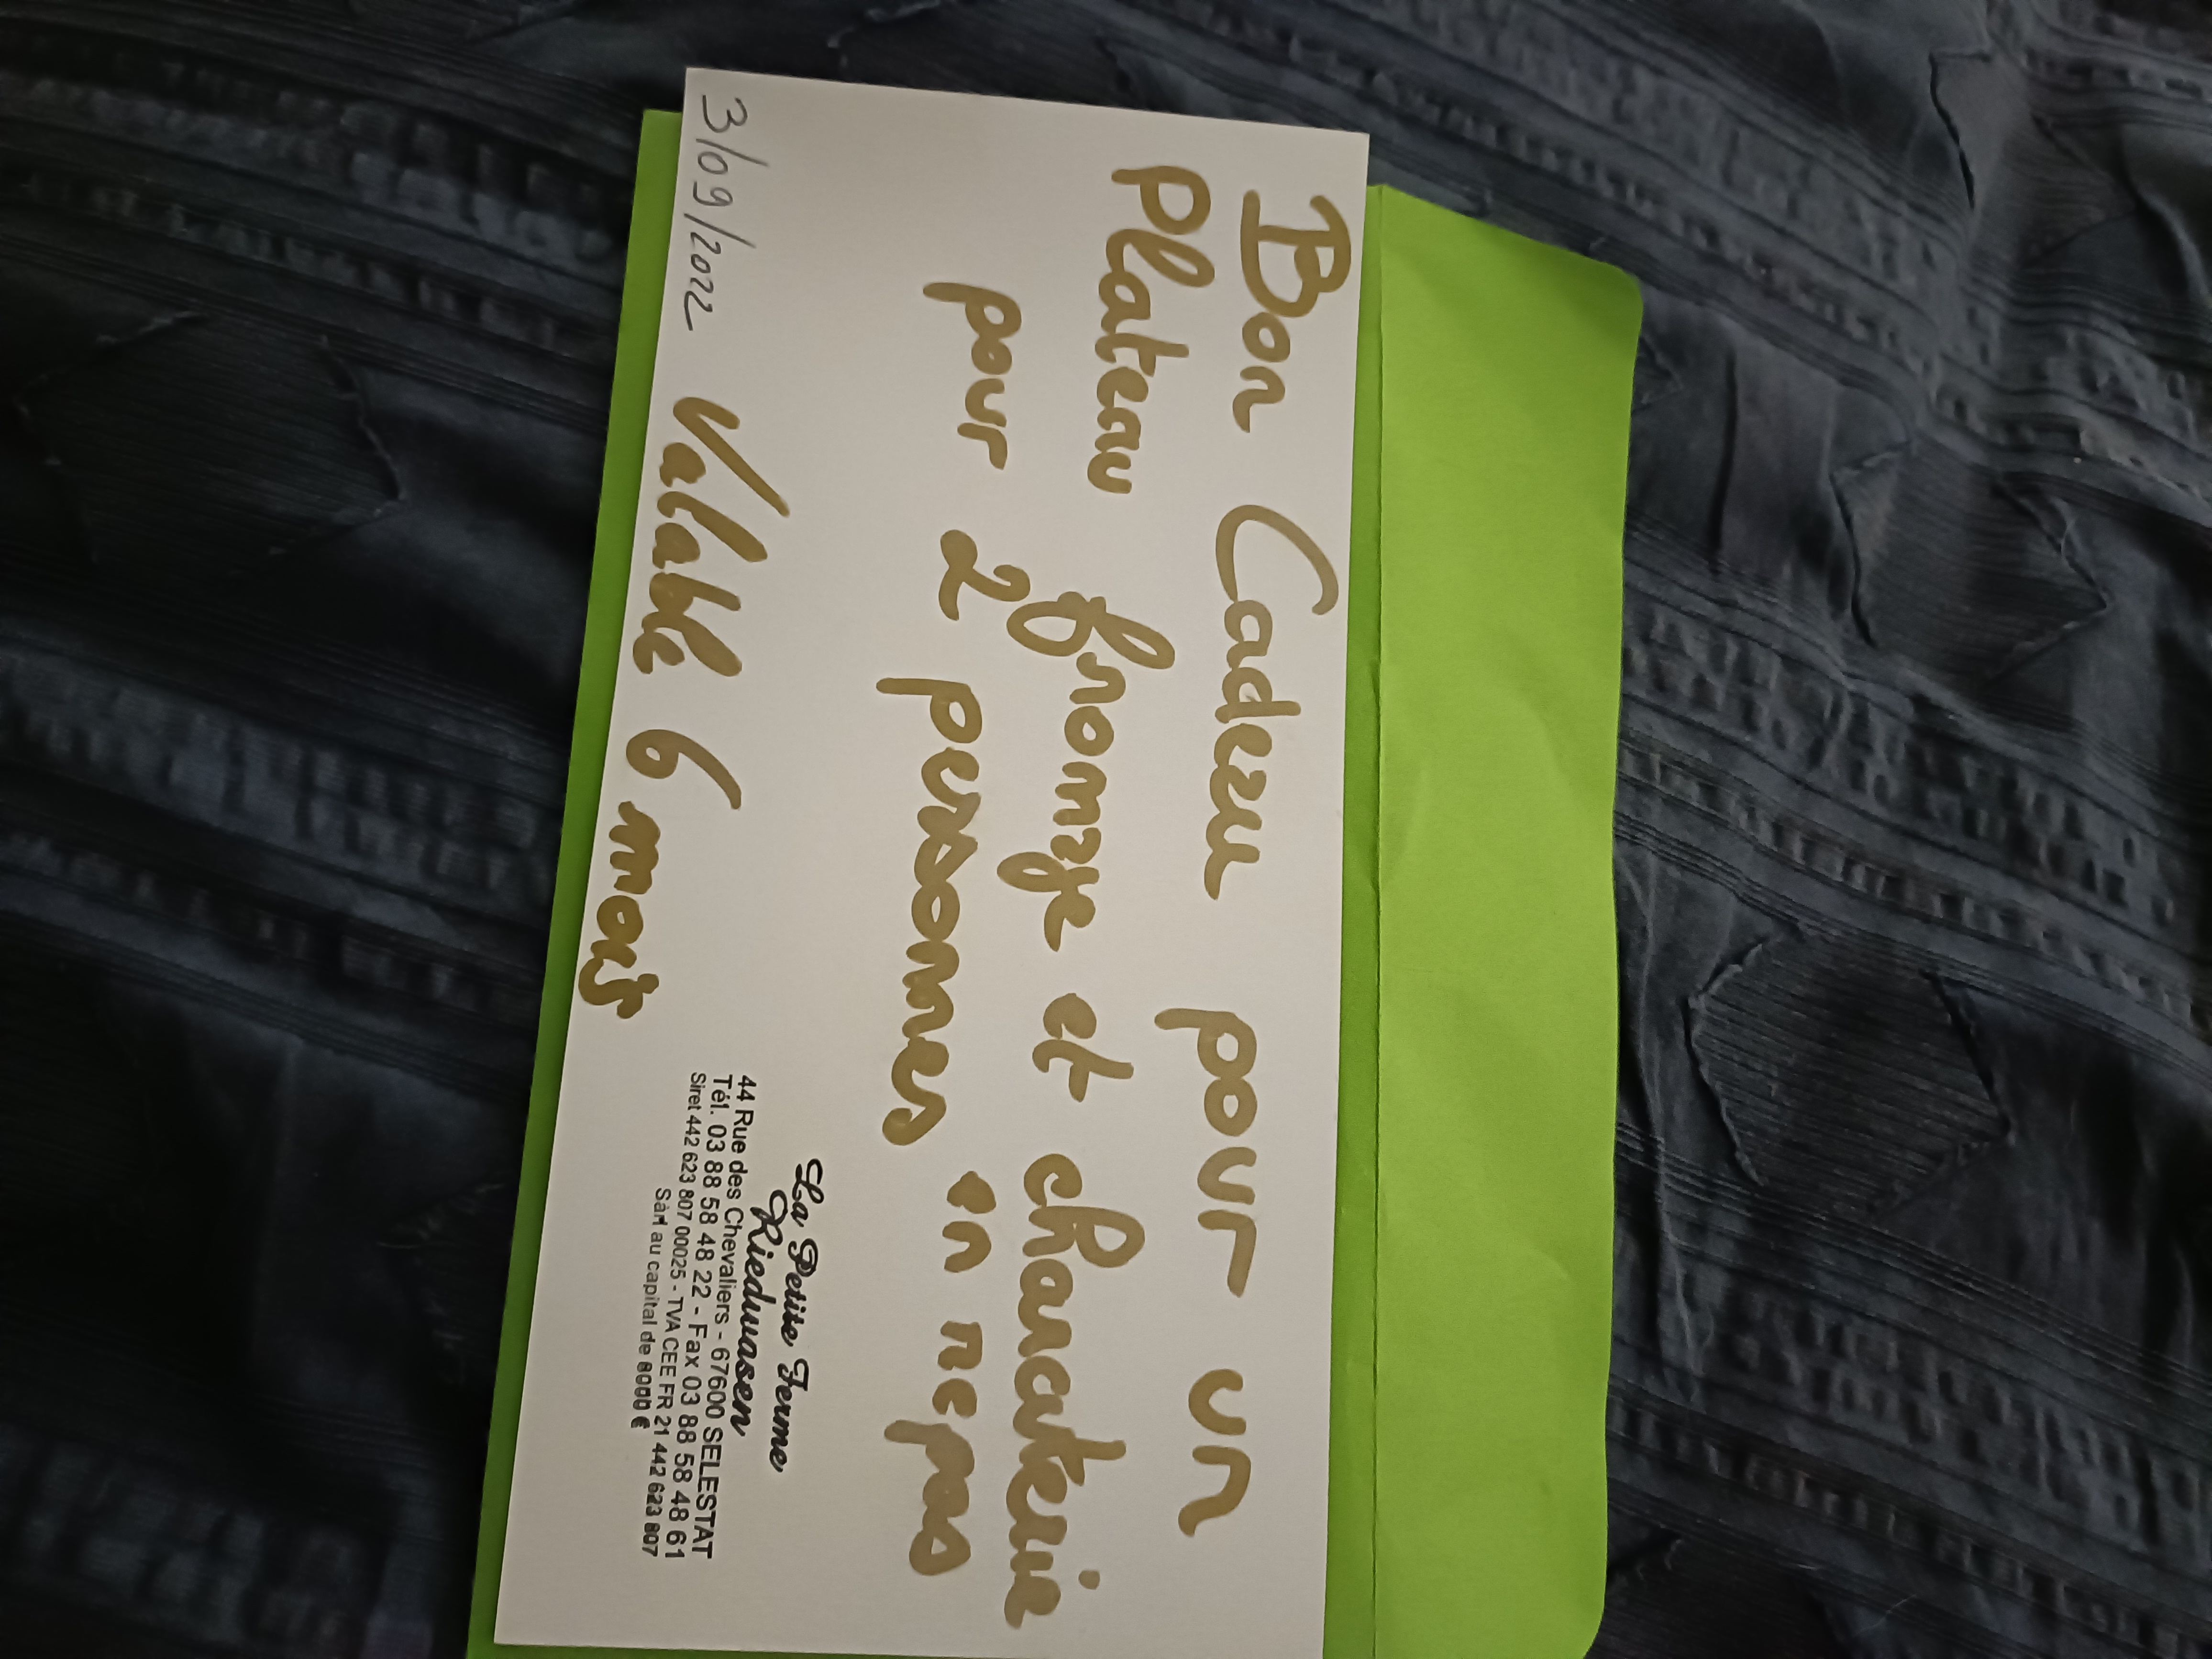 Bon Cadeau pour un
plateau fromage et charcuterie
pour 2 personnes en repas
La Petite Ferme
Riedwasen
44 Rue des Chevaliers - 67600 SELESTAT
Tél. 03 88 58 48 22 - Fax 03 88 58 48 61
Siret 442 623 807 00025 - TVA CEE FR 21 442 623 807
Sàrl au capital de 8000 €
3/09/2022 Valable 6 mois